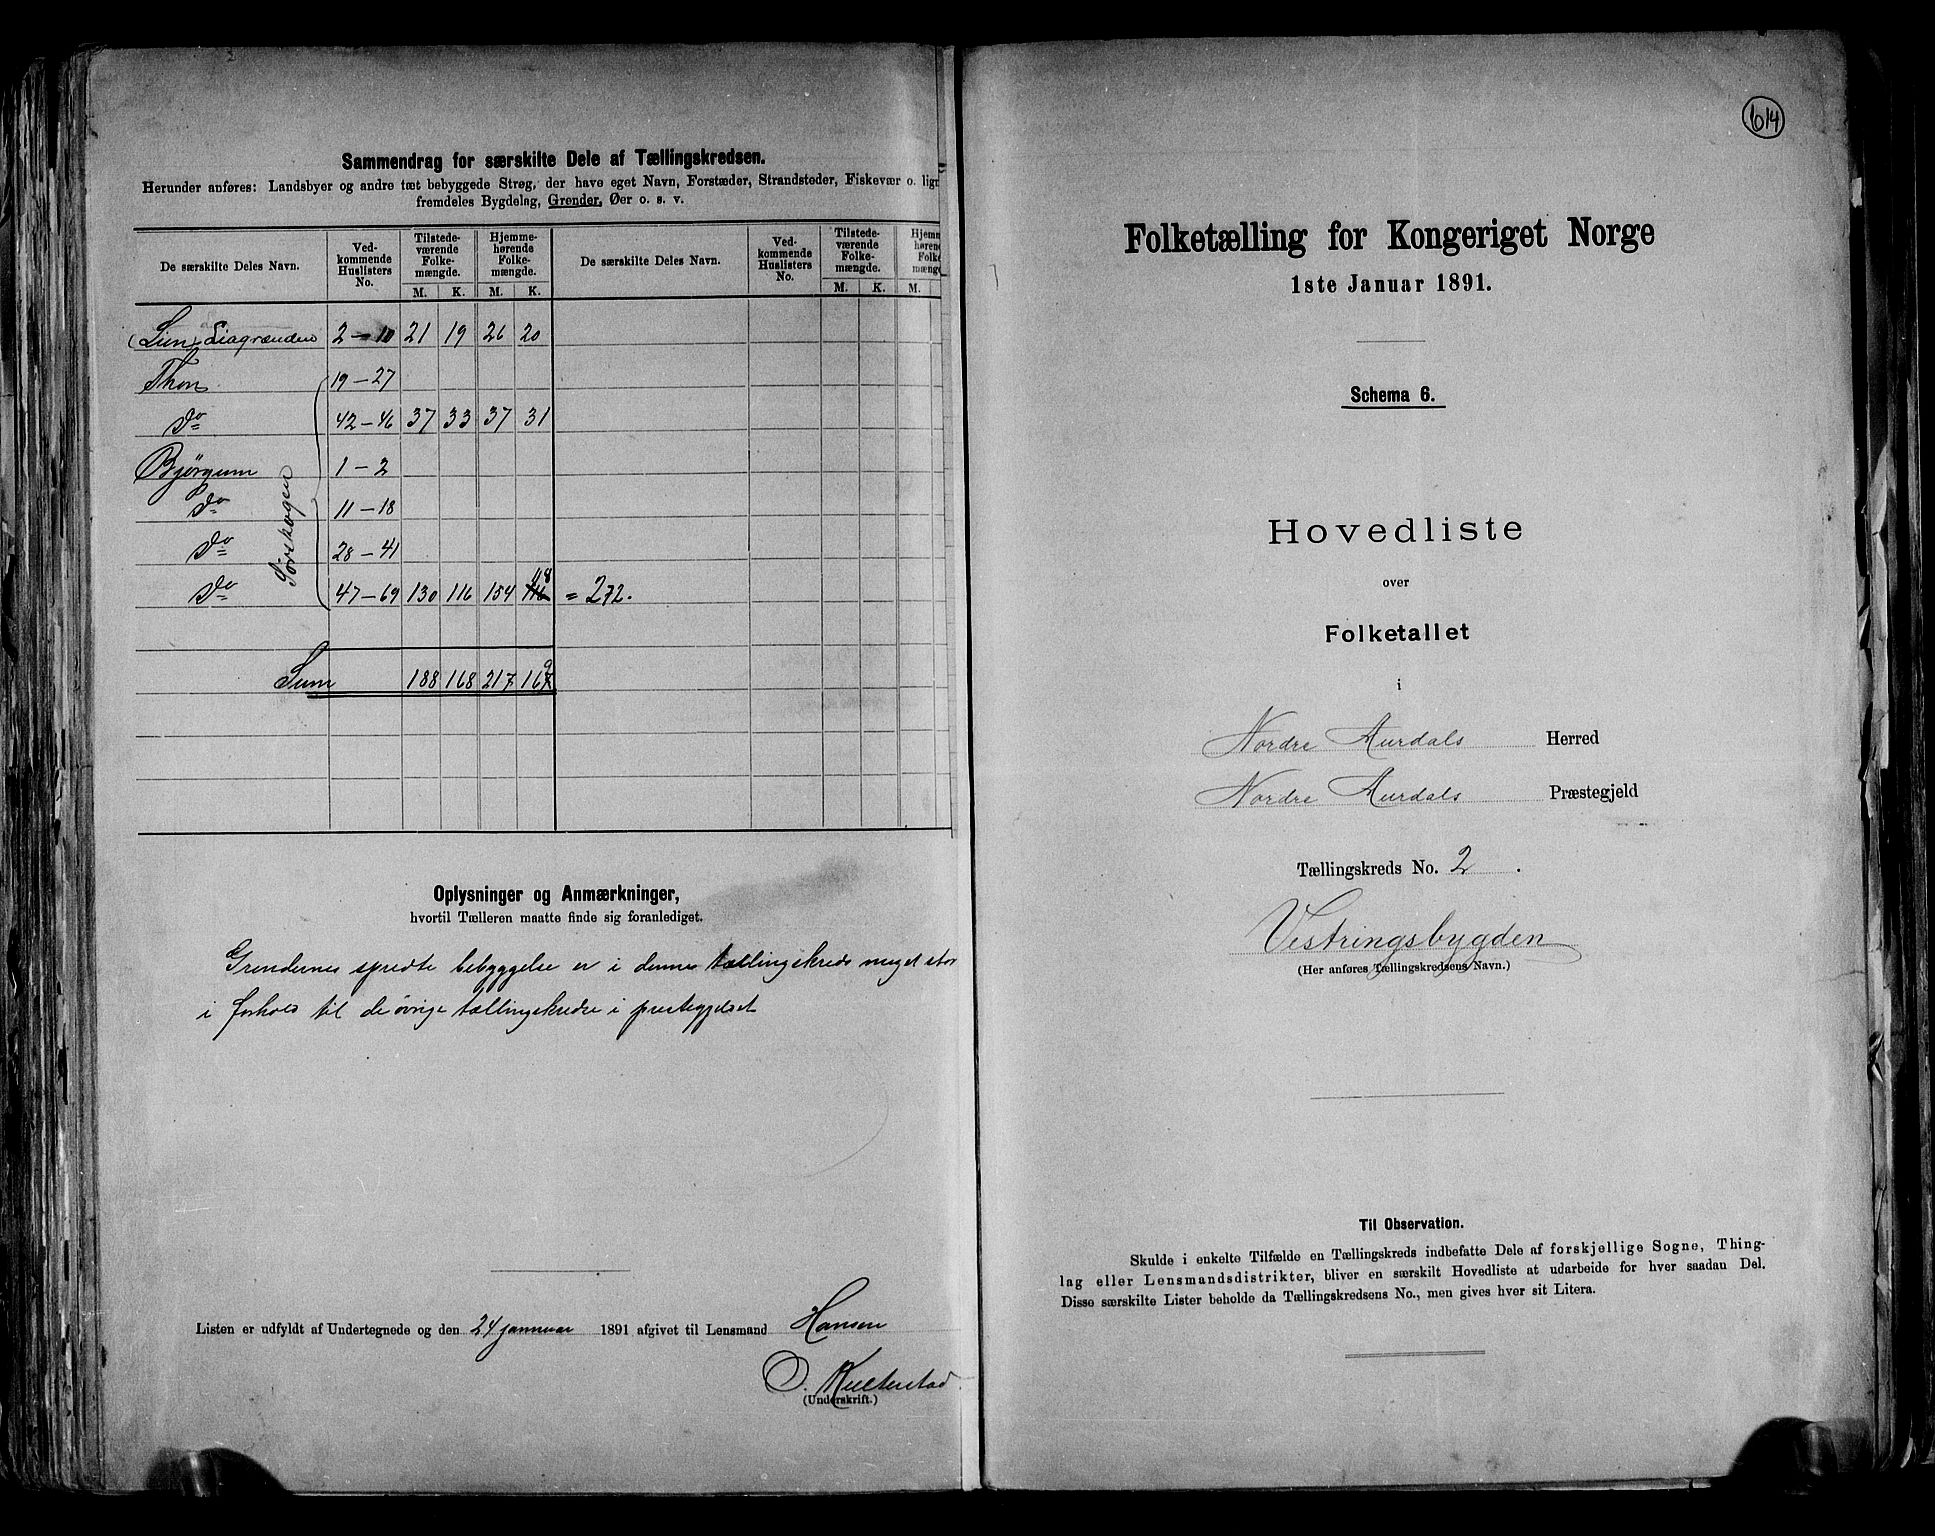 Sammendrag for særskilte Dele af Tællingskredsen.
Herunder anføres: Landsbyer og andre tæt bebyggede Strøg, der have eget Navn, Forstæder, Strandsteder, Fiskevær o. lign
fremdeles Bygdelag, Grender, Øer o. s. v.
De særskilte Deles Navn. Ved-kommende Huslisters No. Tilstede-værende Folke-mængde. Hjemme-hørende Folke-mængde. De særskilte Deles Navn. Ved-kommende Huslisters No. Tilstede-værende Folke-mængde. Hjemm hørend Folke mængd
M. K. M. K. M. K. M.
(Lien) Liagrænden 2 - 10 21 19 26 20
Thon 19 - 27
do 42 - 46 37 33 37 31
Bjørgum 1 - 2
do 11 - 18
do 28 - 41
do 47 - 69 130 116 154 116 118 = 272.
Sørskogen
Sum 188 168 217 167 9
Oplysninger og Anmærkninger,
hvortil Tælleren maatte finde sig foranlediget.
Grendernes spredte bebyggelse er i denne tællingskreds meget stor
i forhold til de øvrige tællingskredse i prestegjeldet
Listen er udfyldt af Undertegnede og den 24 januar 1891 afgivet til Lensmand Hansen
O. Kulterstad
(Underskrift.)
614
Folketælling for Kongeriget Norge
1ste Januar 1891.
Schema 6.
Hovedliste
over
Folketallet
i
Nordre Aurdals Herred
Nordre Aurdals Præstegjeld
Tællingskreds No. 2.
Vestringsbygden
(Her anføres Tællingskredsens Navn.)
Til Observation.
Skulde i enkelte Tilfælde en Tællingskreds indbefatte Dele af forskjellige Sogne, Thing-
lag eller Lensmandsdistrikter, bliver en særskilt Hovedliste at udarbeide for hver saadan Del.
Disse særskilte Lister beholde da Tællingskredsens No., men gives hver sit Litera.